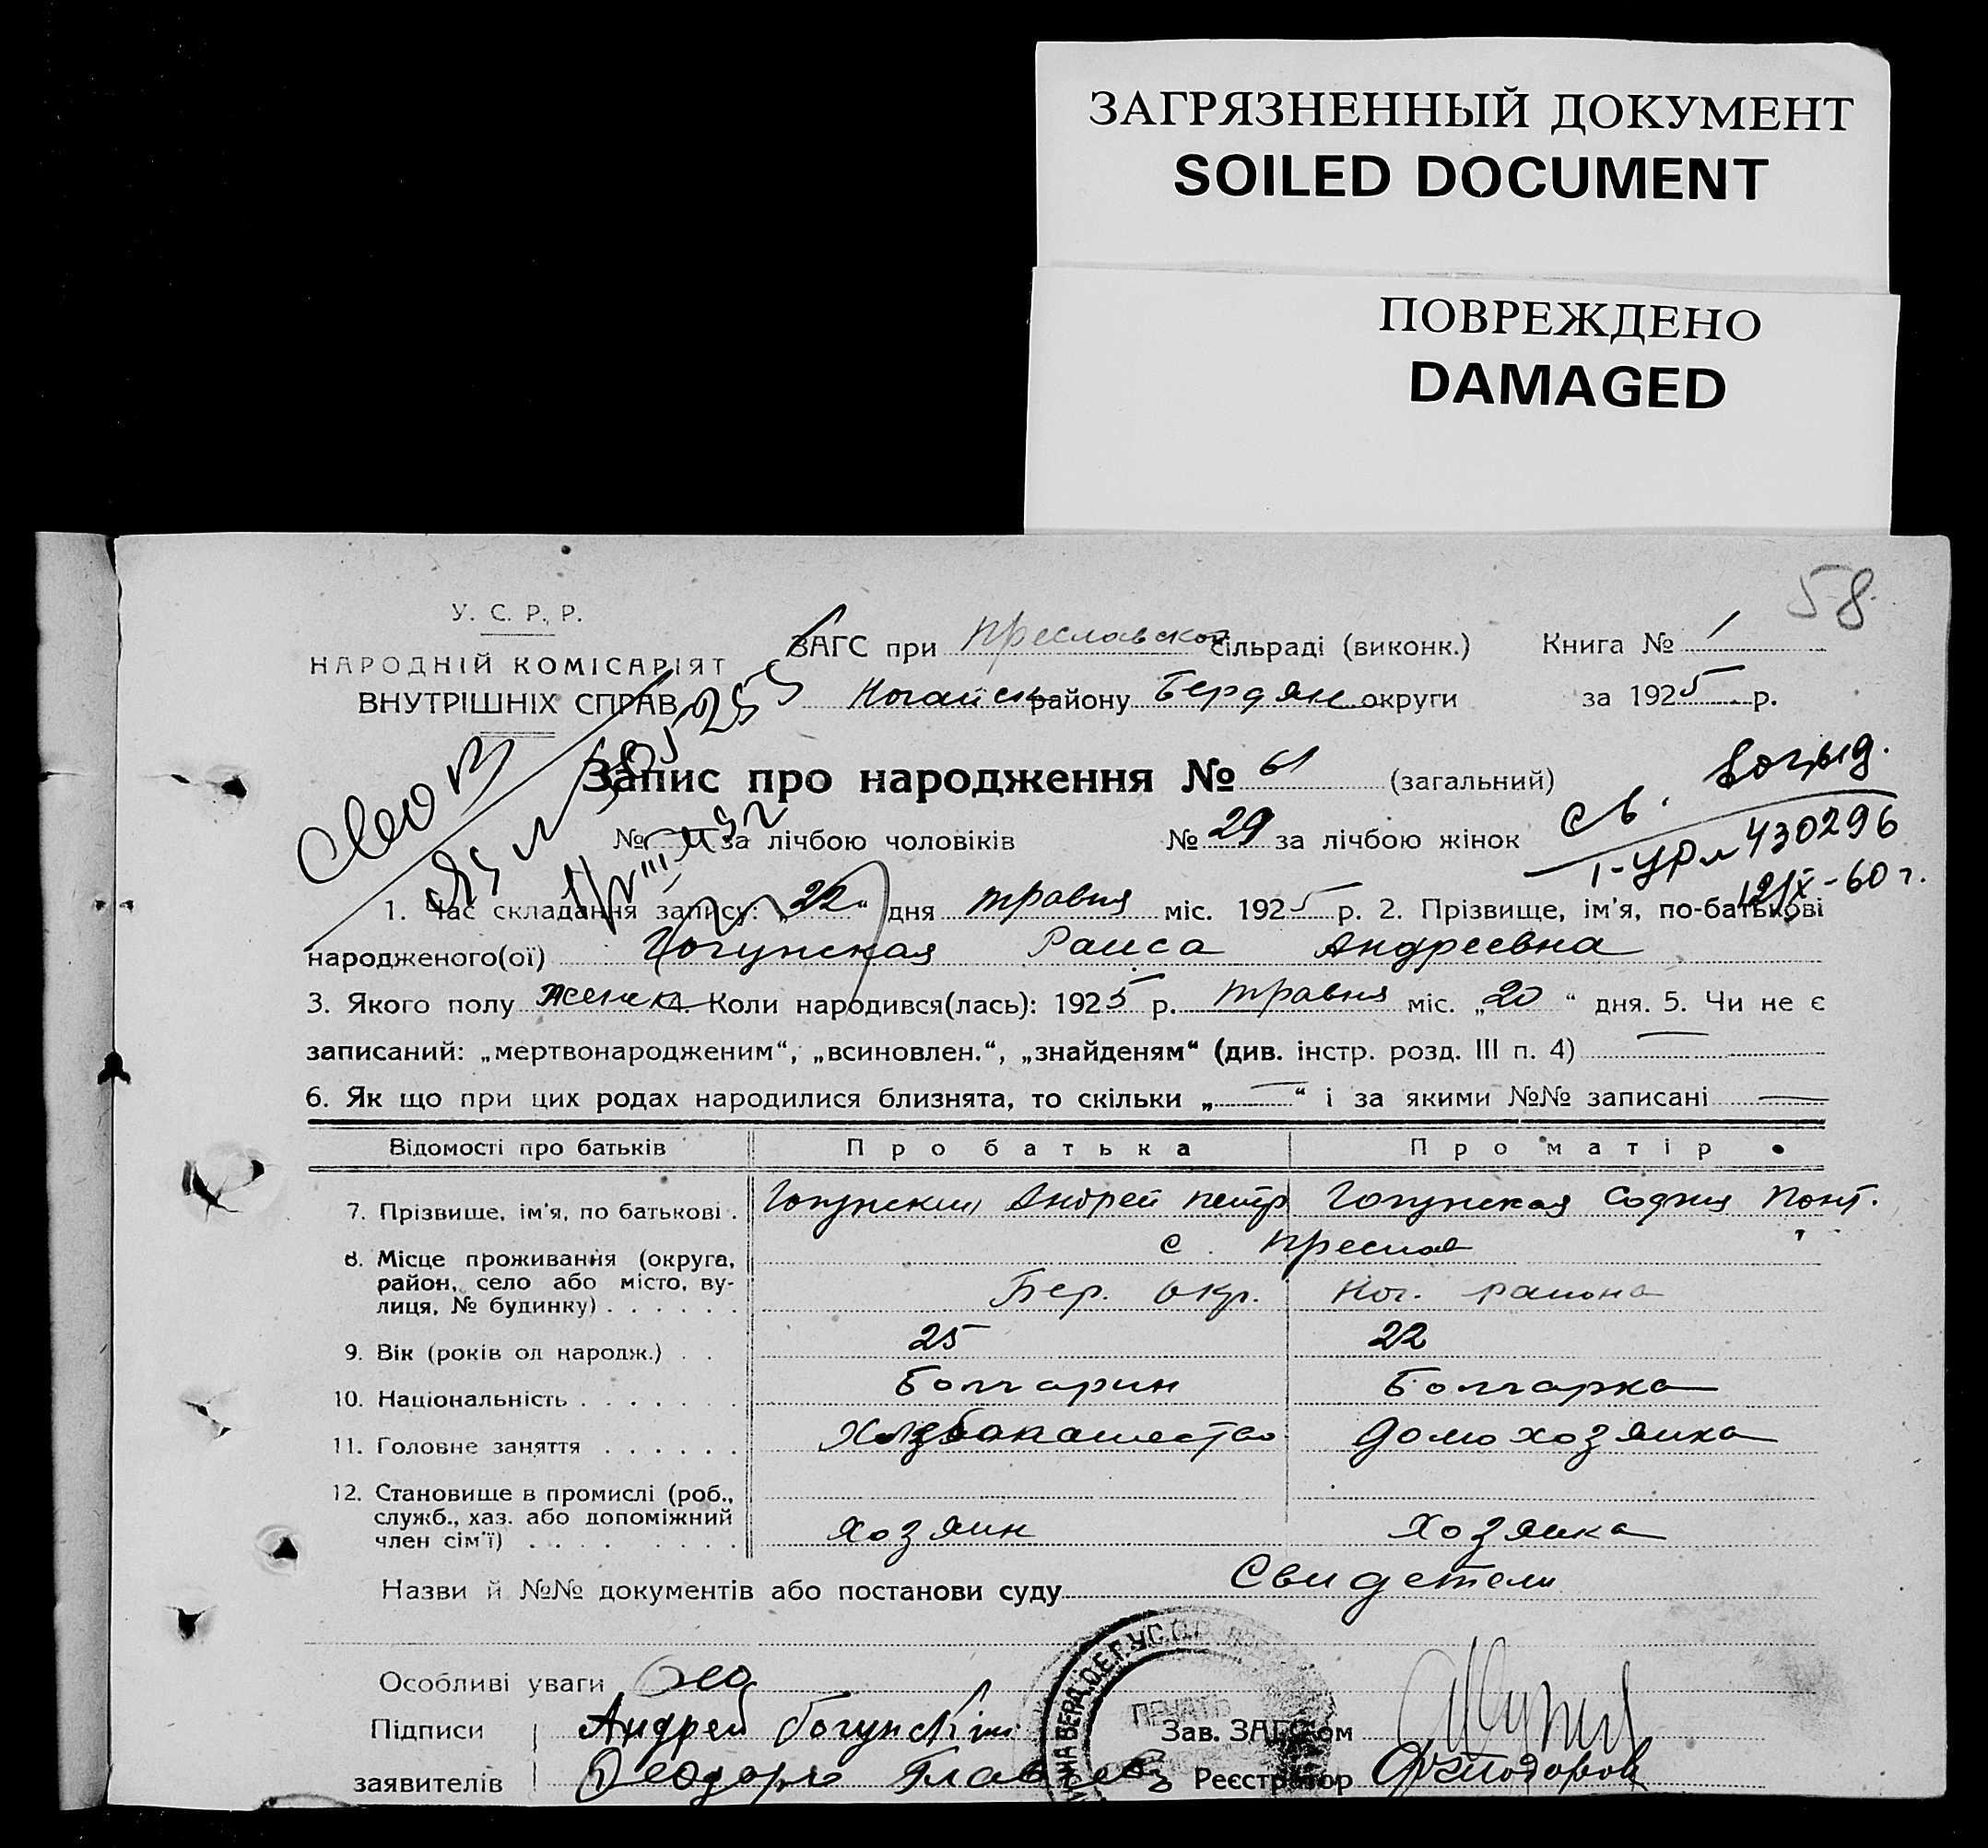 ЗАГРЯЗНЕННЫЙ ДОКУМЕНТ
SOILED DOCUMENT
ПОВРЕЖДЕНО
DAMAGED
58
У. С. Р. Р.
НАРОДНІЙ КОМІСАРІЯТ
ВНУТРІШНІХ СПРАВ
ЗАГС при Преславской сільраді (виконк.) Книга № 1
Ногайск району Бердян округи за 1925 р.
Запис про народження № 61 (загальний)
св. выд.
№ — за лічбою чоловіків № 29 за лічбою жінок
430296
12/IX-60 г.
1. Час складання запису: „22“ дня травня міс. 1925 р. 2. Прізвище, ім'я, по-батькові
народженого(ої) Гогунская Раиса Андреевна
3. Якого полу женск 4. Коли народився(лась): 1925 р. травня міс. „20“ дня. 5. Чи не є
записаний: „мертвонародженим“, „всиновлен.“, „знайденям“ (див. інстр. розд. III п. 4) —
6. Як що при цих родах народилися близнята, то скільки „—“ і за якими №№ записані —
Відомості про батьків Про батька Про матір
7. Прізвище, ім'я, по батькові . Гогунский Андрей Петр Гогунская София Пант.
8. Місце проживання (округа, район, село або місто, вулиця, № будинку) . . . . . . с. Преслав
Бер. окр. Ног. района
9. Вік (років од народж.) . . 25 22
10. Національність . . . . . . . Болгарин Болгарка
11. Головне заняття . . . . . . Хлебопашество домохозяйка
12. Становище в промислі (роб., служб., хаз. або допоміжний член сім'ї) . . . . . . . . Хозяин Хозяйка
Назви й №№ документів або постанови суду Свидетели
Особливі уваги
Підписи Андрей Гогунский Зав. ЗАГСом
заявителів Реєстратор
ПЕЧАТЬ